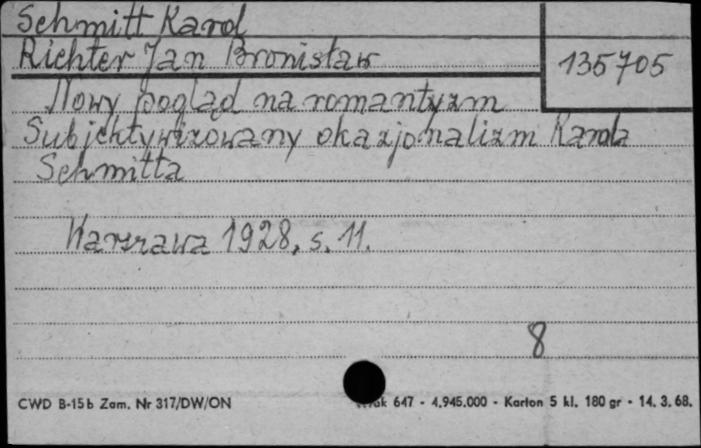 Schmitt Karol
Richter Jan Bronisław
135705
Nowy pogląd na romantyzm
Subjektywizowany okazjonalizm Karola
Schmitta
Warszawa 1928, s. 11.
8
CWD B-15b Zam. Nr 317/DW/ON
647 - 4.945.000 - Karton 5 kl. 180 gr - 14. 3. 68.